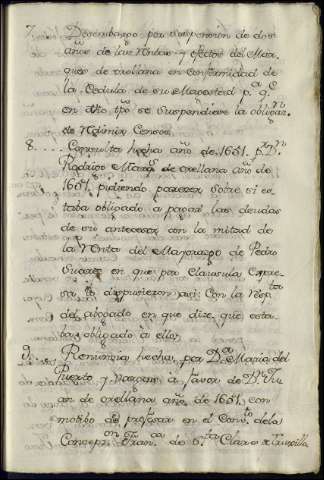 7. Desembargo por suspension de dos
años de las Rentas y efectos del Mar-
ques de orellana en conformidad de
la Cedula de su Magestad p.ª q.e
en dho tpõ se suspendiese la obligaz.n
de Redimir Censos
8. . . . Consulta hecha año de 1651. p.r D.n
Rodrigo Marq.s de orellana año de
1651, pidiendo parezer sobre si es
taba obligado a pagar las deudas
de su antecesor con la mitad de
la Renta del Mayorazgo de Pedro
Suarez en que por Clausula Expre-
sa, lo dispusieron asi: Con la Resp.ta
del abogado en que dize que esta
ba obligado à ello,
9. Renuncia hecha, por D.ª Maria del
Puerto y Vargas a favor de D.n Ju
an de orellana año, de 1651, con
motibo de profesar en el Conv.to dela
Concep.on Fran.ca de S.ta Clara de Truxillo